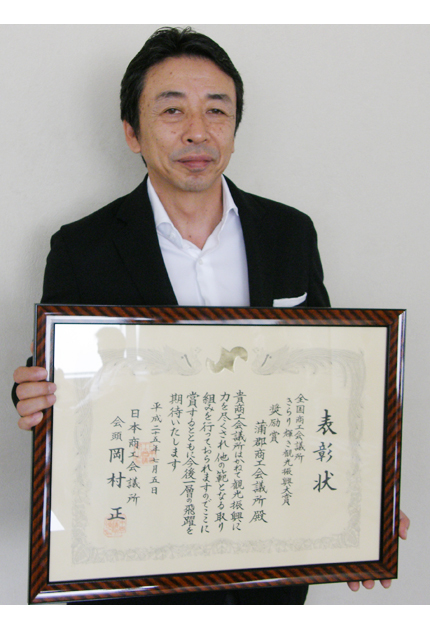 表彰状
全国商工会議所
きらり輝き観光振興大賞
奨励賞
蒲郡商工会議所殿
貴商工会議所はかねて観光振興に
力を尽くされ他の範となる取り
組みを行っておられますのでここに
賞するとともに今後一層の飛躍を
期待いたします
平成二五年七月五日
日本商工会議所
会頭 岡村正